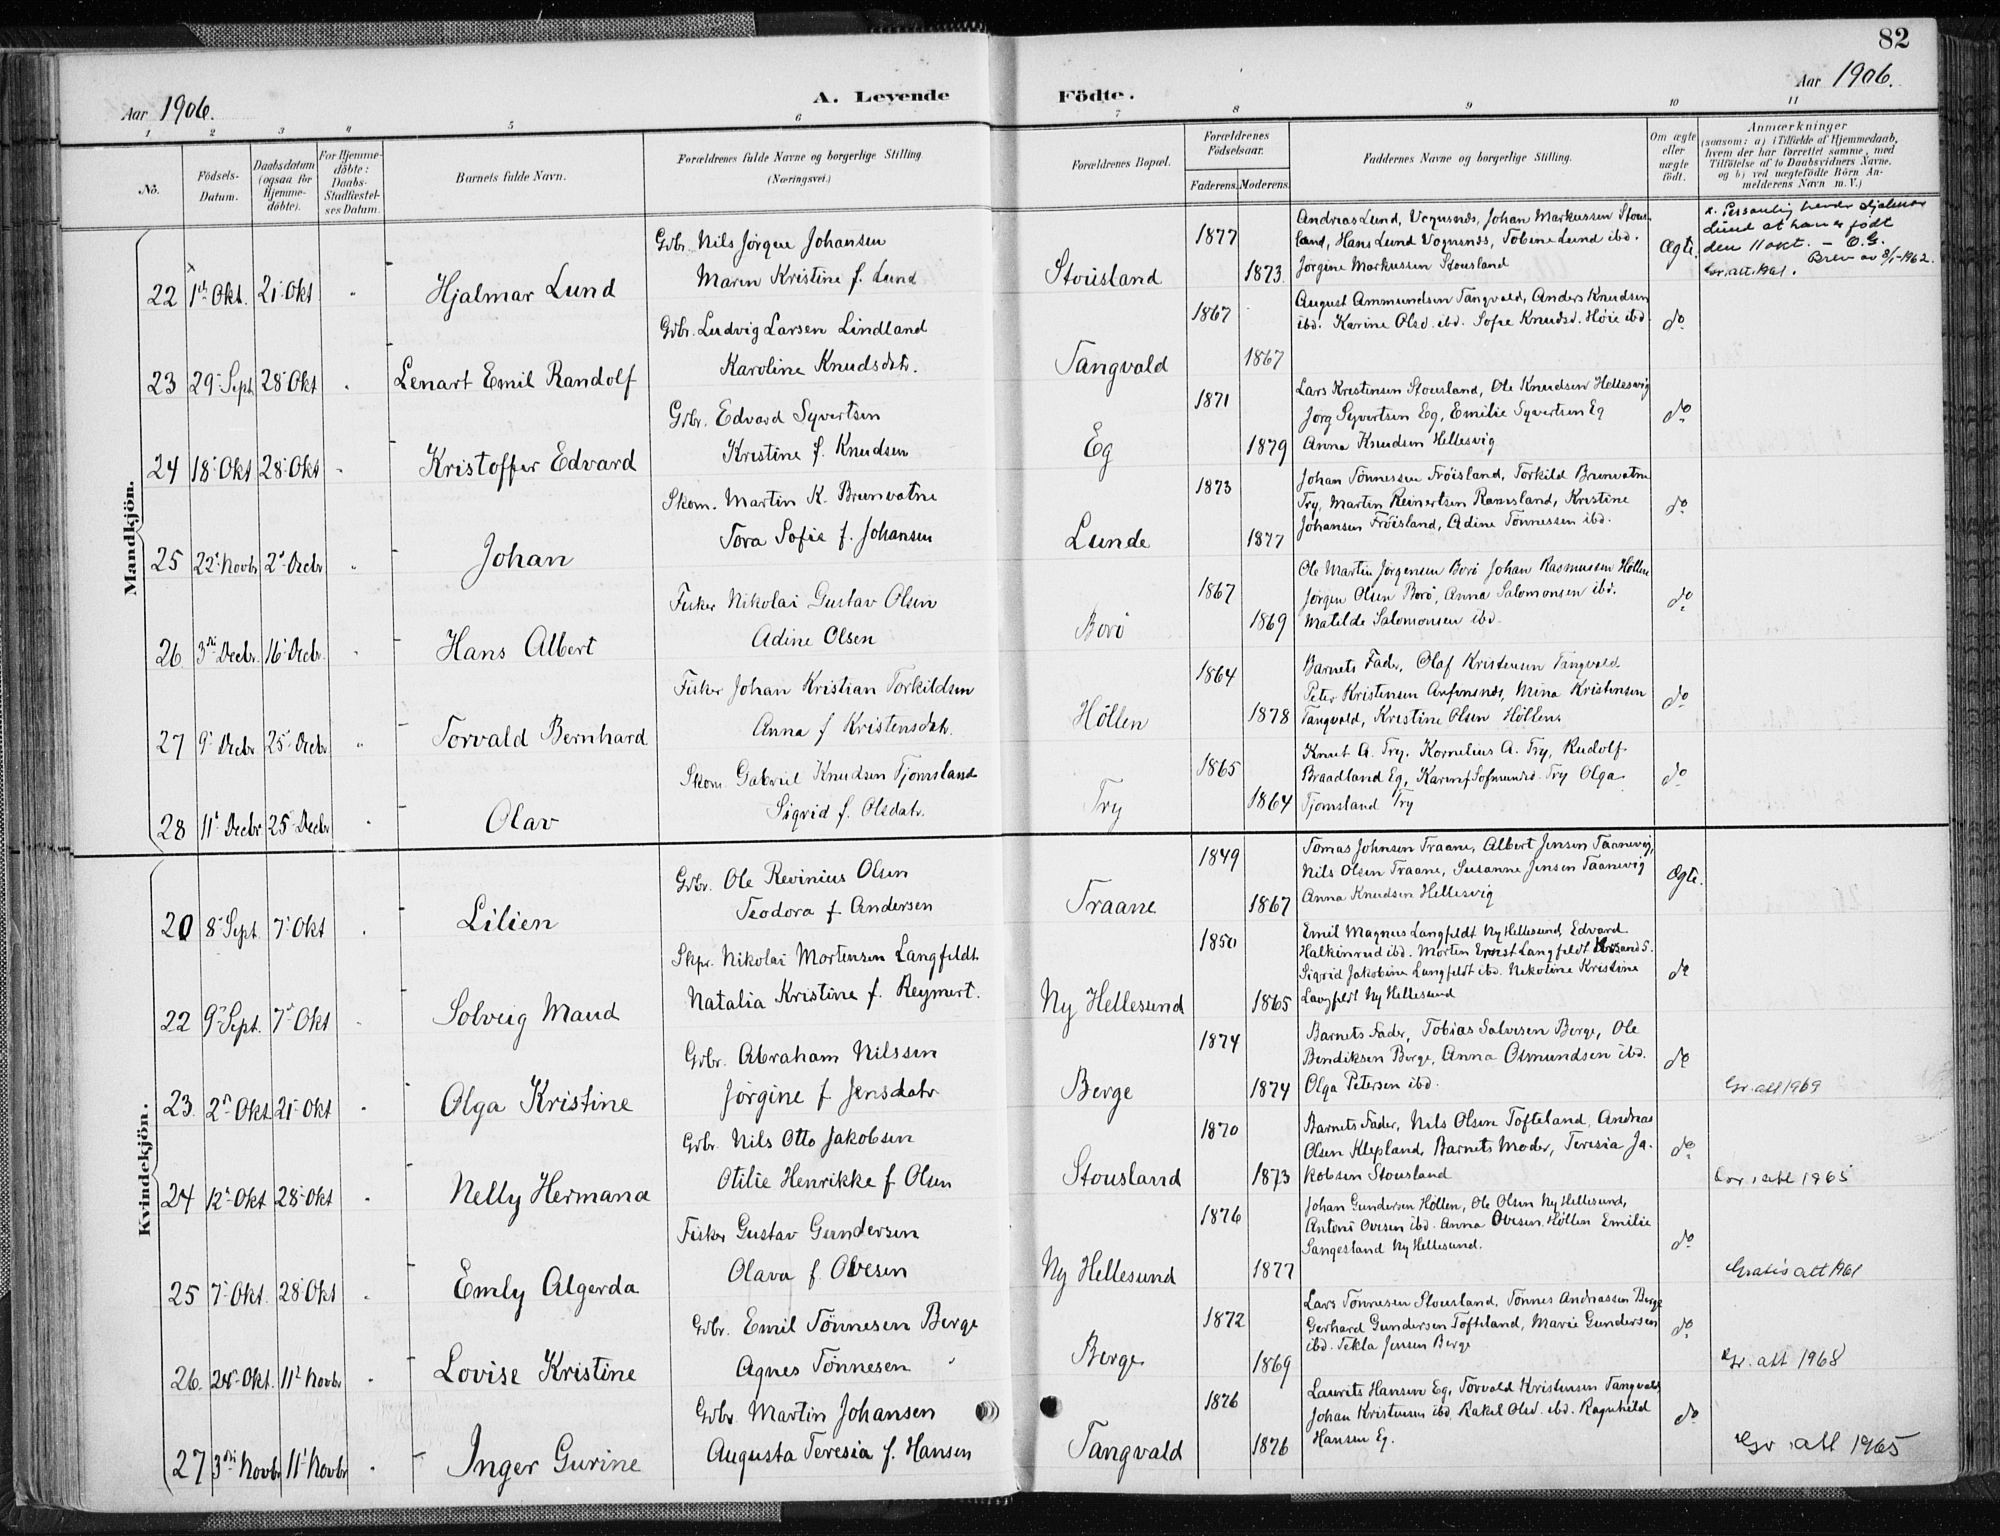 82
Aar 1906.
A. Levende Födte.
Aar 1906.
1 2 3 4 5 6 7 8 9 10 11
No.
Födsels-Datum.
Daabsdatum (ogsaa for Hjemme-döbte).
For Hjemme-döbte: Daabs-Stadfæstel-ses Datum.
Barnets fulde Navn.
Forældrenes fulde Navne og borgerlige Stilling
(Næringsvei.)
Forældrenes Bopæl.
Forældrenes Födselsaar.
Faderens. Moderens.
Faddernes Navne og borgerlige Stilling.
Om ægte eller uægte födt.
Anmærkninger
(saasom: a) i Tilfælde af Hjemmedaab,
hvem der har forrettet samme, med
Tilföielse af to Daabsvidners Navne.
og b) ved uægtefödte Börn An-
melderens Navn m. V.)
Mandkjön.
22 1ste Okt. 21 Okt Hjalmar Lund
Gdbr. Nils Jörgen Johansen
Maren Kristine f. Lund
Stousland
1877
1873
Andreas Lund, Vognsnes, Johan Markussen Stous-
land, Hans Lund Vognsnes, Tobine Lund ibd.
Jörgine Markussen Stousland
Ægte.
x. Lund at han er født
den 11 okt. – O.G.
Brev av 8/1-1962.
Gr. att. 1961.
23 29 Sept 28 Okt Lenart Emil Randolf
Gdbr. Ludvig Larsen Lindland
Karoline Knudsdtr.
Tangvald
1867
1867
August Ammundsen Tangvald, Anders Knudsen
ibd. Karine Olsd. ibd. Sofie Knudsd. Höie ibd.
do
24 18 Okt 28 Okt Kristoffer Edvard
Gdbr. Edvard Syvertsen
Kristine f. Knudsen
Eg
1871
1879
Lars Kristensen Stousland, Ole Knudsen Hellesvig
Jorg Syvertsen Eg, Emilie Syvertsen Eg
Anna Knudsen Hellesvig
do
25 22 Novbr 2 Decbr Johan
Skom. Martin K. Brunvatne
Tora Sofie f. Johansen
Lunde
1873
1877
Johan Tönnessen Fröisland, Torkild Brunvatne
Try, Martin Reinertsen Ramsland, Kristine
Johansen Fröisland, Adine Tönnessen ibd.
do
26 3die Decbr. 16 Decbr. Hans Albert
Fisker Nikolai Gustav Olsen
Adine Olsen
Borö
1867
1869
Ole Martin Jörgensen Borö Johan Rasmussen Höllen
Jörgen Olsen Borö, Anna Salomonsen ibd.
Matilde Salomonsen ibd.
do
27 9 Decbr 25 Decbr Torvald Bernhard
Fisker Johan Kristian Torkildsen
Anna f Kristensdtr.
Höllen
1864
1878
Barnets Fader, Olaf Kristensen Tangvald
Peter Kristensen Amfensnes, Mina Kristensen
Tangvald, Kristine Olsen Höllen.
do
28 11 Decbr 25 Decbr Olav
Skom. Gabriel Knudsen Tjomsland
Sigrid f. Olsdatr.
Try
1865
1864
Knut A. Try. Kornelius A. Try, Rudolf
Braadland Eg, Try Olga
Tjomsland Try
do
Kvindekjön.
20 8 Sept. 7 Okt Lilien
Gdbr. Ole Revinius Olsen
Teodora f. Andersen
Traane
1849
1867
Tomas Johnsen Traane, Albert Jensen Taanevig,
Nils Olsen Traane, Susanne Jensen Taanevig
Anna Knudsen Hellesvig
Ægte.
22 9 Sept. 7 Okt Solveig Maud
Skpr. Nikolai Mortensen Langfeldt.
Natalia Kristine f. Reymert.
Ny Hellesund
1850
1865
Emil Magnus Langfeldt Ny Hellesund, Edvard
Halkinrud ibd. Morten Ernst Langfeldt Krsand S.
Sigrid Jakobine Langfeldt ibd. Nikoline Kristine
Langfeldt Ny Hellesund
do
23. 2n Okt. 21 Okt Olga Kristine
Gdbr. Abraham Nilssen
Jörgine f Jensdatr.
Berge
1874
1874
Barnets Fader, Tobias Salvesen Berge, Ole
Bendiksen Berge, Anna Osmundsen ibd.
Olga Petersen ibd.
do
Gr. att 1969
24 12 Okt 28 Okt Nelly Hermana
Gdbr. Nils Otto Jakobsen
Otilie Henrikke f Olsen
Stousland
1870
1873
Barnets Fader, Nils Olsen Tofteland, Andreas
Olsen Klepland, Barnets Moder, Teresia Ja-
kobsen Stousland
do
Gr. att 1965
25 7 Okt. 28 Okt Emly Algerda
Fisker Gustav Gundersen
Olava f. Ovesen
Ny Hellesund
1876
1877
Johan Gundersen Höllen, Ole Olsen Ny Hellesund,
Antoni Ovesen ibd. Anna Ovesen Höllen Emilie
Sangesland Ny Hellesund.
do
Gratis att 1961
26. 24 Okt. 11 Novbr Lovise Kristine
Gdbr. Emil Tönnesen Berge
Agnes Tönnesen
Berge
1872
1869
Lars Tönnesen Stousland. Tönnes Andreassen Berge
Gerhard Gundersen Tofteland, Marie Gundersen
ibd. Tekla Jensen Berge
do
Gr. att 1968
27 3die Novbr 11 Novbr Inger Gurine
Gdbr. Martin Johansen
Augusta Teresia f. Hansen
Tangvald
1876
1876
Laurits Hansen Eg, Torvald Kristensen Tangvald
Johan Kristensen ibd. Rakel Olsd. ibd. Ragnhild
Hansen Eg.
do
Gr. att 1965